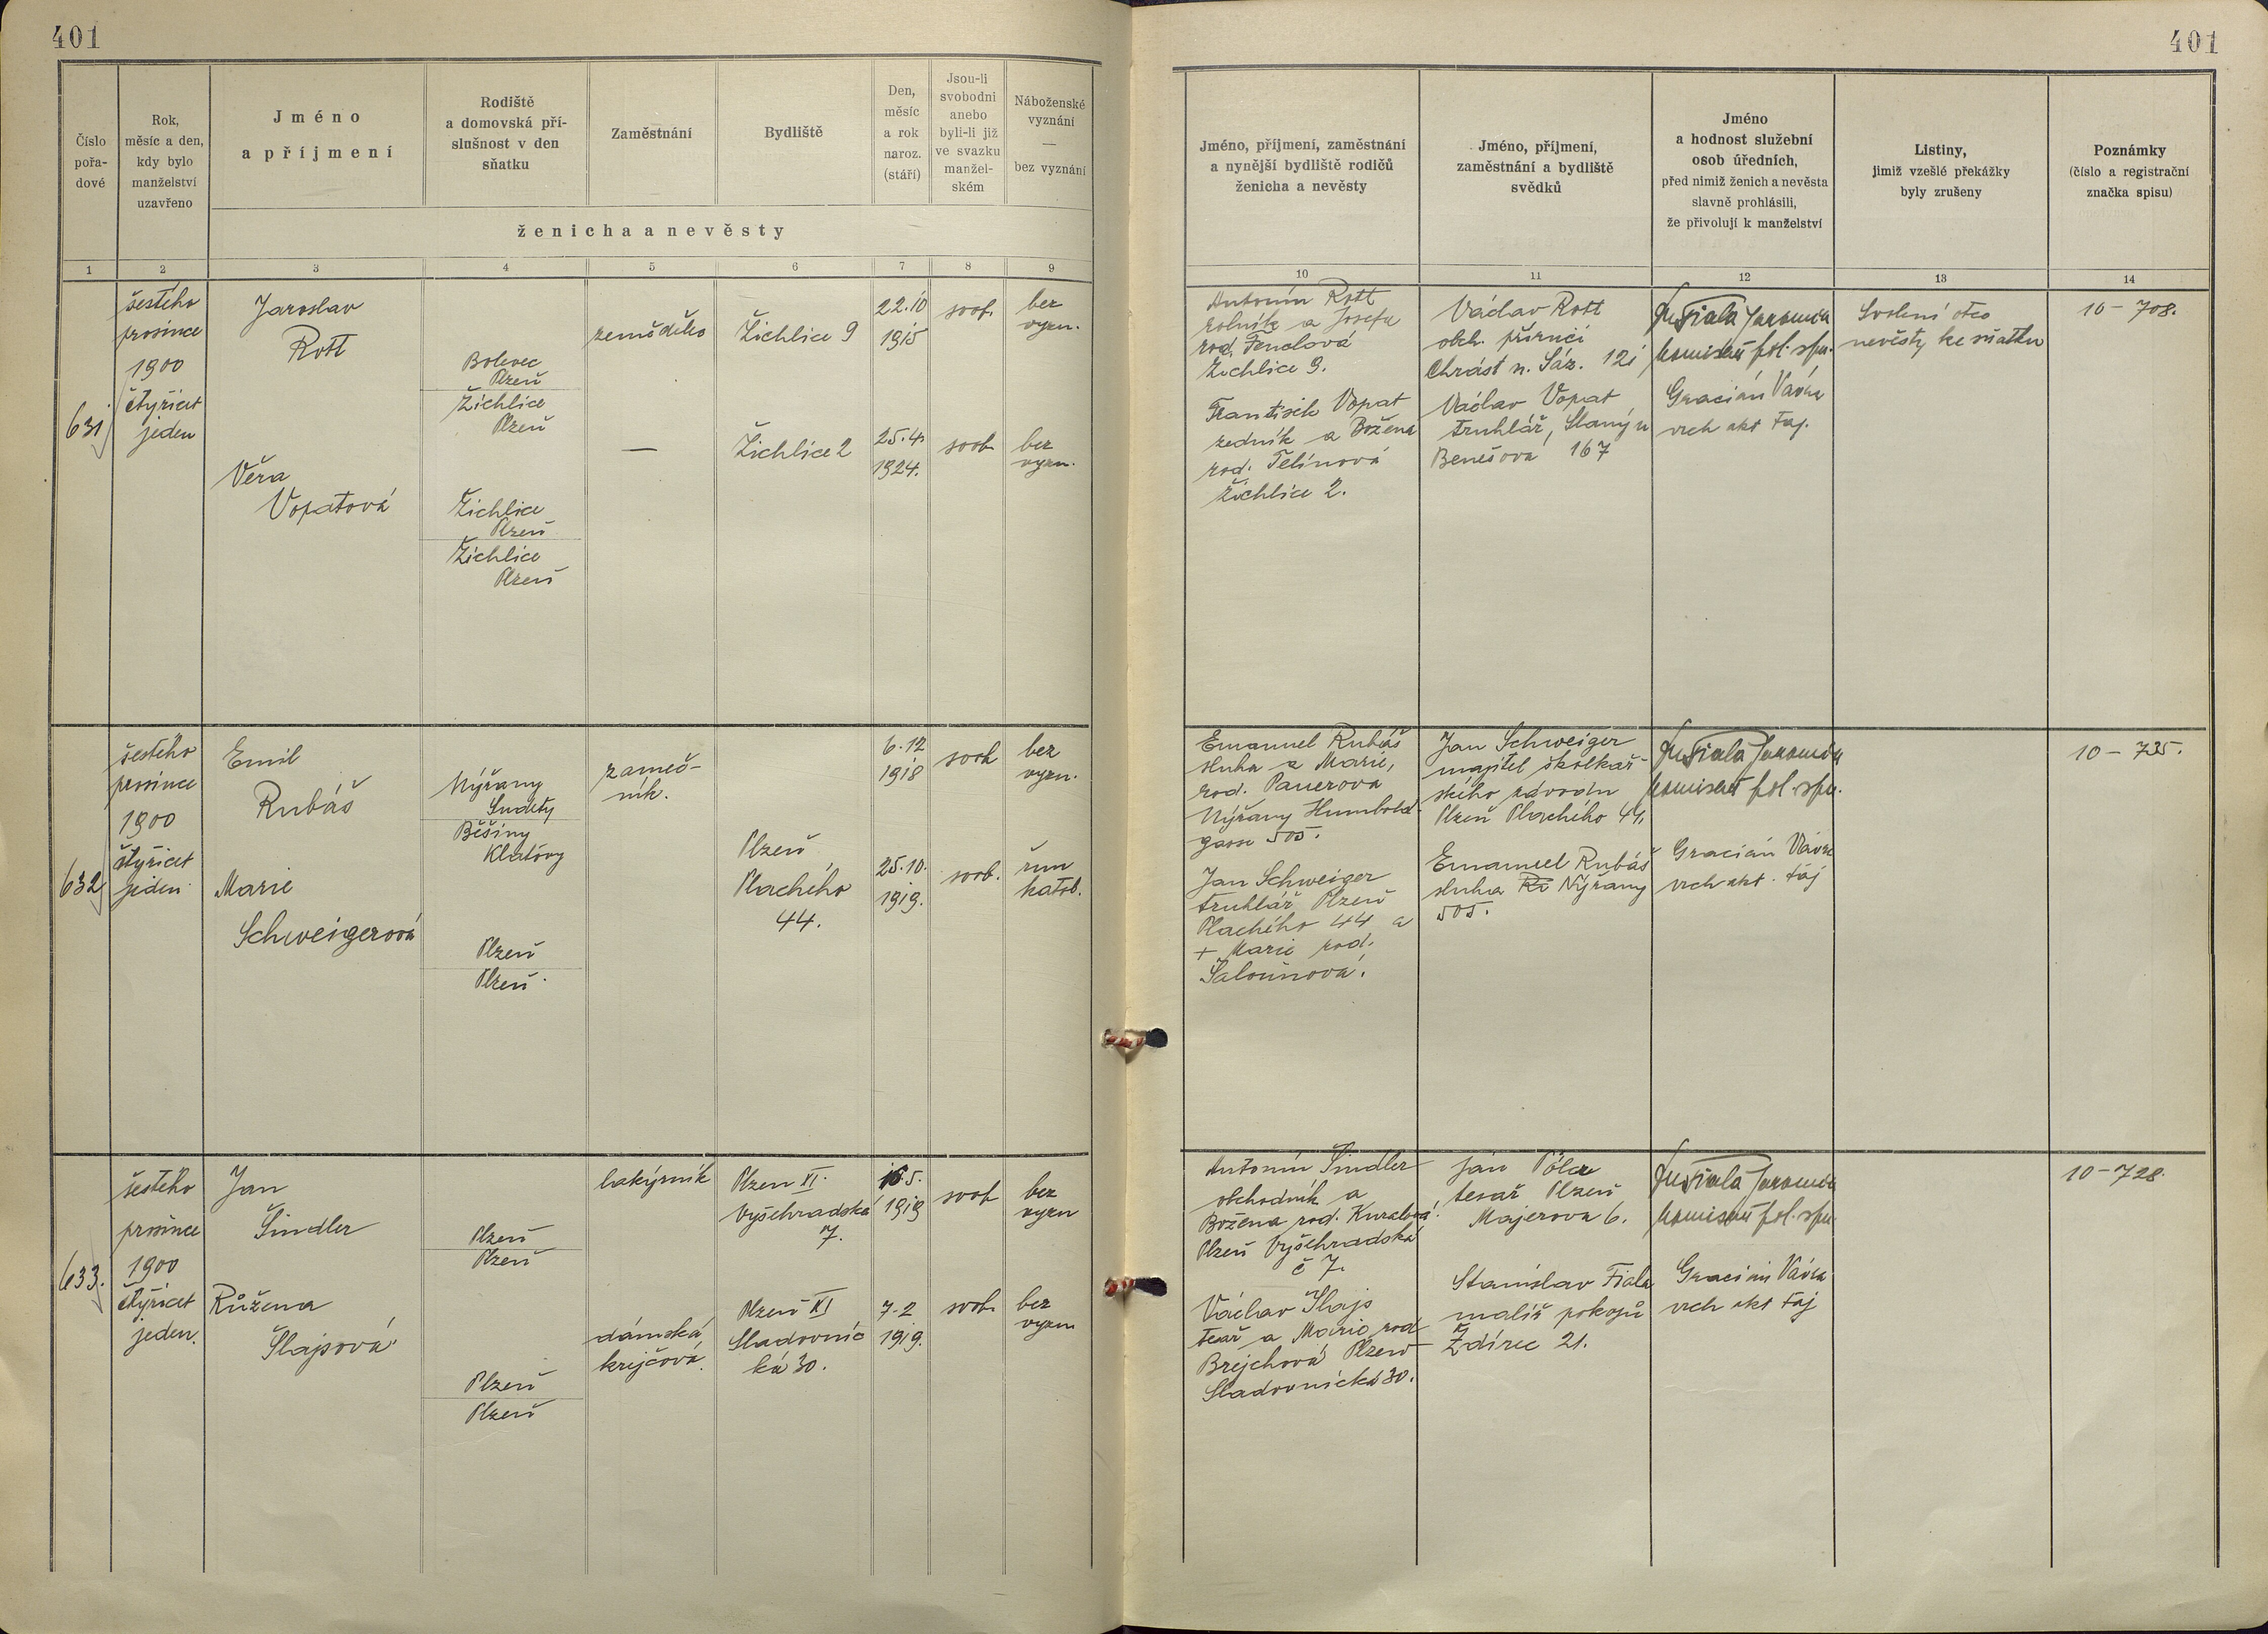 401
401
Číslo
pořa-
dové
Rok,
měsíc a den,
kdy bylo
manželství
uzavřeno
Jméno
a příjmení
Rodiště
a domovská pří-
slušnost v den
sňatku
Zaměstnání
Bydliště
Den,
měsíc
a rok
naroz.
(stáří)
Jsou-li
svobodni
anebo
byli-li již
ve svazku
manžel-
ském
Náboženské
vyznání
—
bez vyznání
ženicha a nevěsty
Jméno, příjmení, zaměstnání
a nynější bydliště rodičů
ženicha a nevěsty
Jméno, příjmení,
zaměstnání a bydliště
svědků
Jméno
a hodnost služební
osob úředních,
před nimiž ženich a nevěsta
slavně prohlásili,
že přivolují k manželství
Listiny,
jimiž vzešlé překážky
byly zrušeny
Poznámky
(číslo a registrační
značka spisu)
1 2 3 4 5 6 7 8 9
10 11 12 13 14
631
šestého
prosince
1900
čtyřicet
jeden
Jaroslav
Rott
Bolevec
Plzeň
Žichlice
Plzeň
zeměděl.
Žichlice 9
22.10
1915
svob.
bez
vyzn.
Věra
Vopatová
Žichlice
Plzeň
Žichlice
Plzeň
—
Žichlice 2
25.4.
1924.
svob.
bez
vyzn.
Antonín Rott
rolník a Josefa
rod. Fenclová
Žichlice 9.
František Vopat
zedník a Božena
rod. Telínová
Žichlice 2.
Václav Rott
obch. příručí
Chrást n. Sáz. 121
Václav Vopat
truhlář, Slaný u
Benešova 167
Fiala Jaromír
komisař pol. spr.
Gracián Vávra
vrch. akt. taj.
Svolení otce
nevěsty ke sňatku
10 - 708.
632
šestého
prosince
1900
čtyřicet
jeden
Emil
Rubáš
Nýřany
Sudety
Běšiny
Klatovy
zámeč-
ník.
6.12
1918
svob
bez
vyzn.
Marie
Schweigerová
Plzeň
Plzeň.
Plzeň
Plachého
44.
25.10.
1919.
svob.
řím
katol.
Emanuel Rubáš
sluha a Marie,
rod. Pauerova
Nýřany Humbold-
gasse 505.
Jan Schweiger
truhlář Plzeň
Plachého 44 a
+ Marie rod.
Šalounová.
Jan Schweiger
majitel školkař-
ského závodu
Plzeň Plachého 44.
Emanuel Rubáš
sluha Nýřany
505.
Fiala Jaromír
komisař pol. spr.
Gracián Vávra
vrch. akt. taj
10 - 735.
633.
šestého
prosince
1900
čtyřicet
jeden.
Jan
Šindler
Plzeň
Plzeň
lakýrník
Plzeň XI.
Vyšehradská
7.
1919
svob
bez
vyzn
Růžena
Šlajsová
Plzeň
Plzeň
dámská
krejčová.
Plzeň XI
Sladovnic
ká 30.
7.2
1919.
svob.
bez
vyzn.
Antonín Šindler
obchodník a
Božena rod.
Plzeň Vyšehradská
č 7.
Václav Šlajs
tesař a Marie rod
Brejchová Plzeň
Sladovnická 30.
Jan
tesař Plzeň
Majerova 6.
Stanislav Fiala
malíř pokojů
Ždírec 21.
Fiala Jaromír
komisař pol. spr.
Gracián Vávra
vrch. akt. taj
10 - 728.